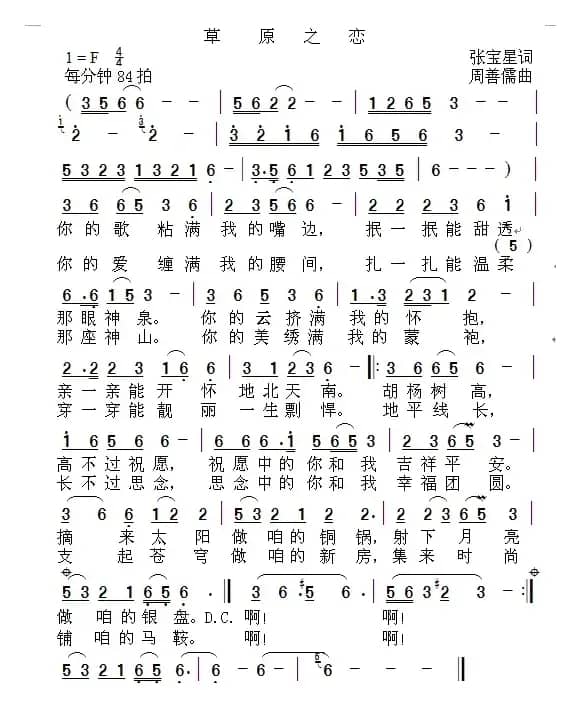 草 原 之 恋
1=F 4/4
张宝星词
每分钟84拍
周善儒曲
( 3 5 6 6 - - | 5 6 2 2 - - | 1 2 6 5 3 - - |
2 - 2 - | 3 2 1 6 | 1 6 5 6 |
5 3 2 3 1 3 2 1 6 - | 3 . 5 6 1 2 3 5 3 5 | 6 - - - )
3 6 6 5 3 6 | 2 3 5 6 6 - | 2 2 2 3 6 i |
你 的 歌 粘 满 我 的 嘴 边， 抿 一 抿 能 甜 透
( 5 )
你 的 爱 缠 满 我 的 腰 间， 扎 一 扎 能 温 柔
6 . 6 1 5 3 - | 3 6 6 5 3 6 | 1 . 3 2 3 1 2 - |
那 眼 神 泉。 你 的 云 挤 满 我 的 怀 抱，
那 座 神 山。 你 的 美 绣 满 我 的 蒙 袍，
2 . 2 2 3 1 6 | 3 2 1 2 3 6 - |: 3 6 6 5 6 - |
亲 一 亲 能 开 怀 地 北 天 南。 胡 杨 树 高，
穿 一 穿 能 靓 丽 一 生 剽 悍。 地 平 线 长，
i 6 5 6 - | 6 6 6 . i | 5 6 5 5 3 - | 2 3 6 5 - |
高 不 过 祝 愿， 祝 愿 中 的 你 和 我 吉 祥 平 安。
长 不 过 思 念， 思 念 中 的 你 和 我 幸 福 团 圆。
3 6 6 1 2 | 2 3 2 1 6 | 1 2 2 . | 2 3 6 5 - |
摘 来 太 阳 做 咱 的 铜 锅， 射 下 月 亮
支 起 苍 穹 做 咱 的 新 房， 集 来 时 尚
5 3 2 1 6 5 6 - | 3 5 . 6 - | 5 6 3 2 3 - :|
做 咱 的 银 盘。D.C. 啊！ 啊！
铺 咱 的 马 鞍。 啊！ 啊！
5 3 2 1 6 5 6 . | 6 - - - | 6 - - ||